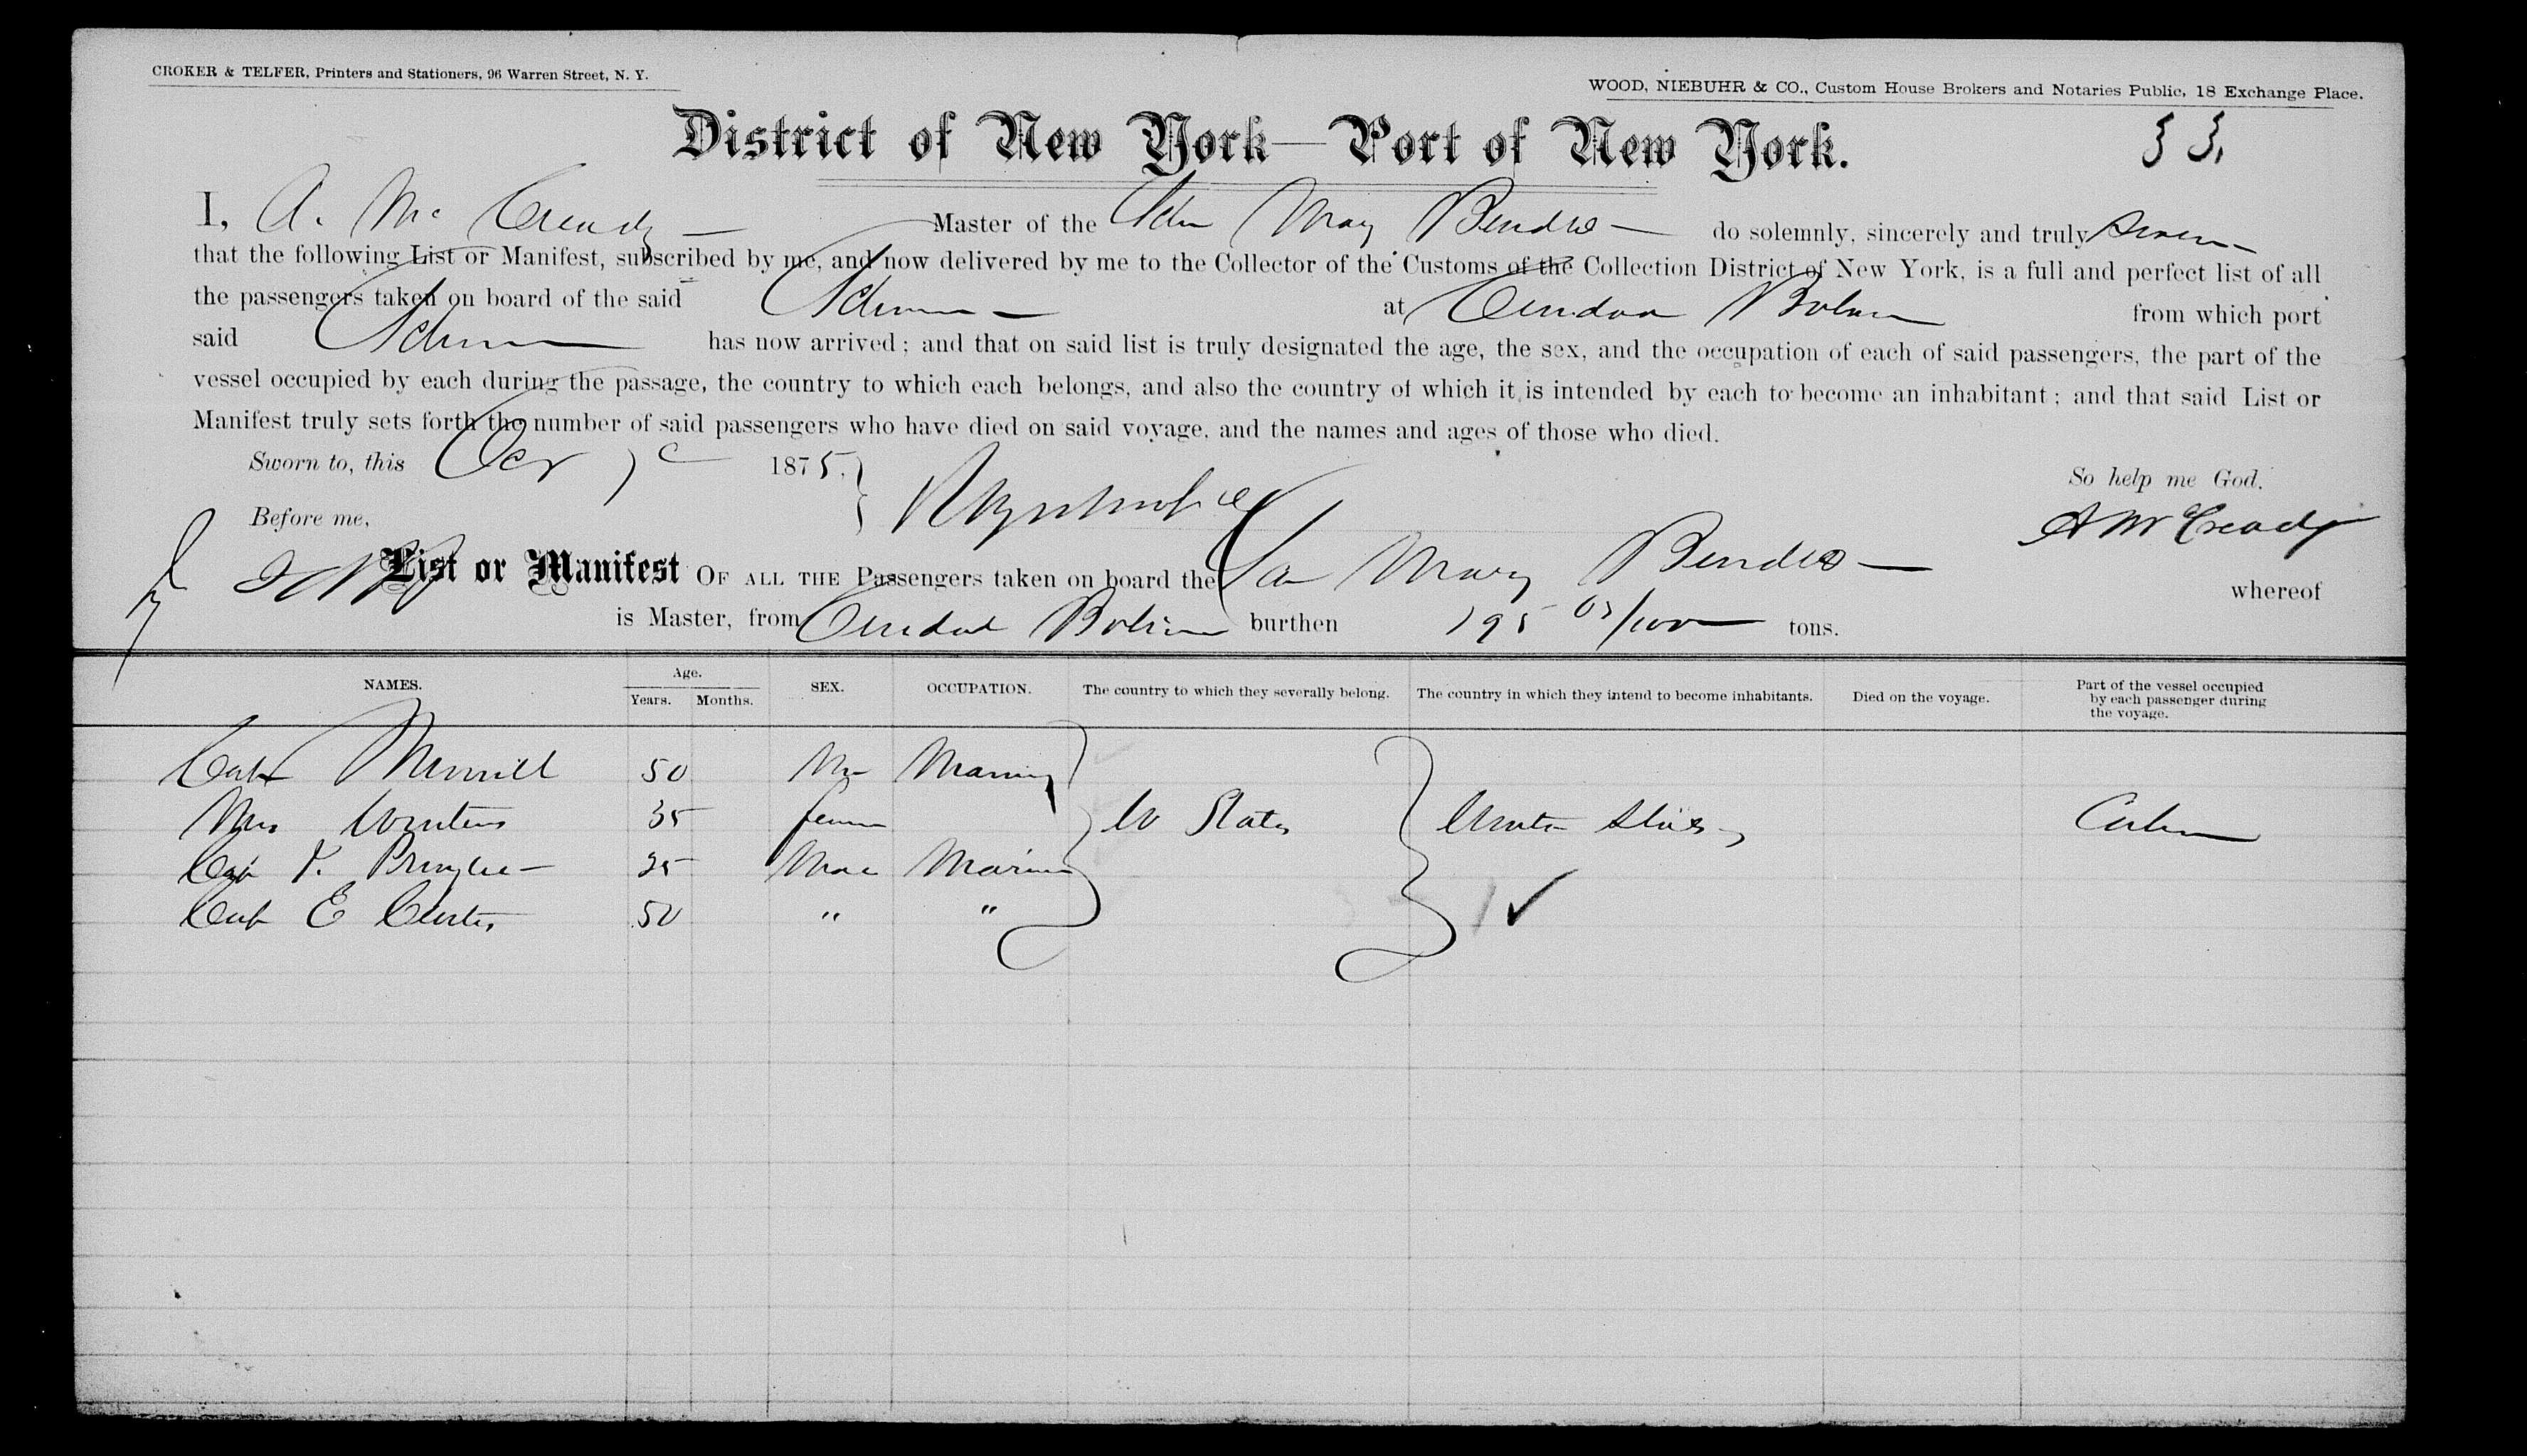 CROKER & TELFER, Printers and Stationers, 96 Warren Street, N. Y.
WOOD, NIEBUHR & CO., Custom House Brokers and Notaries Public, 18 Exchange Place.
District of New York—Port of New York.
I, A. Mc Cready Master of the Schr Mary do solemnly, sincerely and truly swear
that the following List or Manifest, subscribed by me, and now delivered by me to the Collector of the Customs of the Collection District of New York, is a full and perfect list of all
the passengers taken on board of the said Schr at Ciudad Bolivar from which port
said Schr has now arrived; and that on said list is truly designated the age, the sex, and the occupation of each of said passengers, the part of the
vessel occupied by each during the passage, the country to which each belongs, and also the country of which it is intended by each to become an inhabitant; and that said List or
Manifest truly sets forth the number of said passengers who have died on said voyage, and the names and ages of those who died.
Sworn to, this Oct 1875.
So help me God.
Before me,
A McCready
List or Manifest OF ALL THE Passengers taken on board the Mary whereof
is Master, from Ciudad Bolivar burthen 195 tons.
NAMES. Age. Years. Months. SEX. OCCUPATION. The country to which they severally belong. The country in which they intend to become inhabitants. Died on the voyage. Part of the vessel occupied by each passenger during the voyage.
Capt Merrill 50 Mariner
Mrs 35 U States United States Cabin
Capt 25 Male Mariner
Capt E Curtis 50 " "